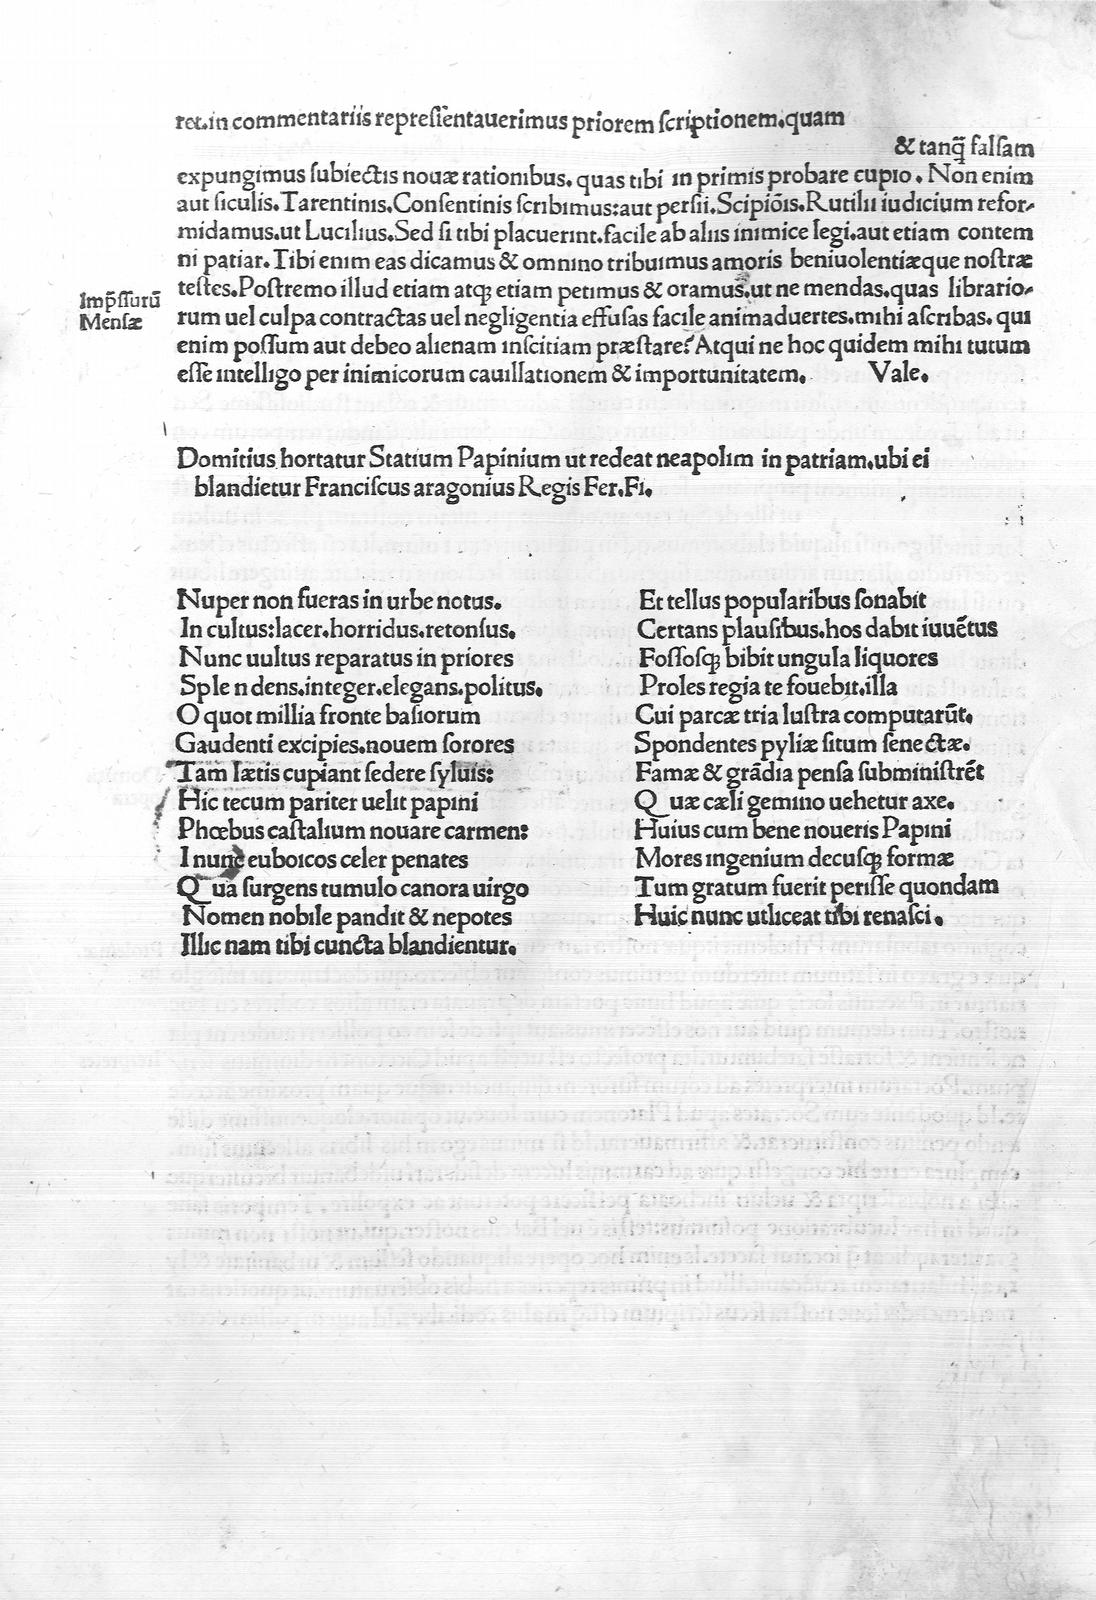 ret.in commentariis repreſſentauerimus priorem ſcriptionem.quam
& tanq̃ falſam
expungimus ſubiectis nouæ rationibus. quas tibi in primis probare cupio. Non enim
aut ſiculis. Tarentinis. Conſentinis ſcribimus:aut perſii. Scipiõis. Rutilii iudicium refor-
midamus.ut Lucilius. Sed ſi tibi placuerint.facile ab aliis inimice legi.aut etiam contem
ni patiar. Tibi enim eas dicamus & omnino tribuimus amoris beniuolentiæque noſtræ
Imp̃ſſurũ
Menſæ
teſtes. Poſtremo illud etiam atqꝫ etiam petimus & oramus.ut ne mendas.quas librario-
rum uel culpa contractas uel negligentia effuſas facile animaduertes.mihi aſcribas. qui
enim poſſum aut debeo alienam inſcitiam præſtare? Atqui ne hoc quidem mihi tutum
eſſe intelligo per inimicorum cauillationem & importunitatem. Vale.
Domitius hortatur Statium Papinium ut redeat neapolim in patriam.ubi ei
blandietur Franciſcus aragonius Regis Fer.Fi.
Nuper non fueras in urbe notus.
In cultus:lacer.horridus.retonſus.
Nunc uultus reparatus in priores
Sple n dens.integer.elegans.politus.
O quot millia fronte baſiorum
Gaudenti excipies.nouem ſorores
Tam lætis cupiant ſedere ſyluis:
Hic tecum pariter uelit papini
Phœbus caſtalium nouare carmen:
I nunc euboicos celer penates
Q ua ſurgens tumulo canora uirgo
Nomen nobile pandit & nepotes
Illic nam tibi cuncta blandientur.
Et tellus popularibus ſonabit
Certans plauſibus.hos dabit iuuẽtus
Foſſoſqꝫ bibit ungula liquores
Proles regia te fouebit.illa
Cui parcæ tria luſtra computarũt.
Spondentes pyliæ ſitum ſenectæ.
Famæ & grãdia penſa ſubminiſtrẽt
Q uæ cæli gemino uehetur axe.
Huius cum bene noueris Papini
Mores ingenium decuſqꝫ formæ
Tum gratum fuerit periſſe quondam
Huic nunc utliceat tibi renaſci.